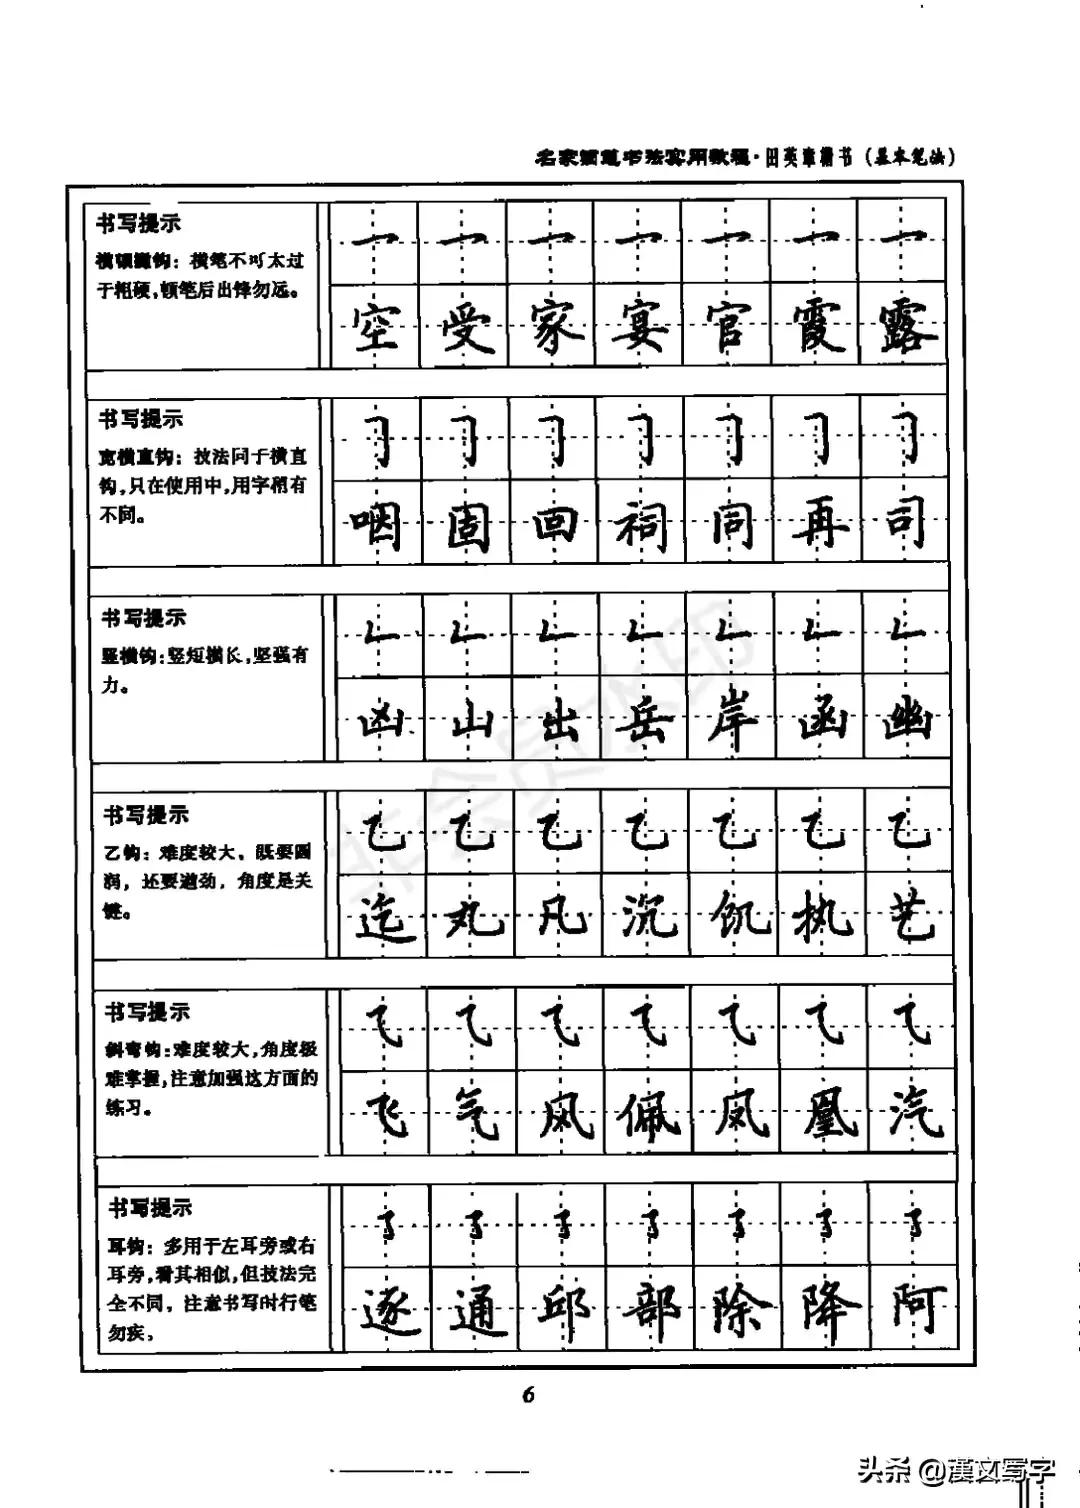 名家书法实用教程·田英章楷书（基本笔法）
书写提示
横顿撇钩：横笔不可太过
于粗硬,顿笔后出锋勿远。
空受家宴官霞露
书写提示
宽横直钩：技法同于横直
钩,只在使用中,用字稍有
不同。
咽固回祠同再司
书写提示
竖横钩:竖短横长,坚强有
力。
凶山出岳岸函幽
书写提示
乙钩：难度较大，既要圆
润，还要遒劲，角度是关
键。
乙乙乙乙乙乙乙
迄丸凡沉饥执艺
书写提示
斜弯钩:难度较大,角度极
难掌握,注意加强这方面的
练习。
飞气风佩凤凰汽
书写提示
耳钩：多用于左耳旁或右
耳旁,看其相似,但技法完
全不同，注意书写时行笔
勿疾，
逐通邱部除降阿
6
非会员水印
头条@漢文写字